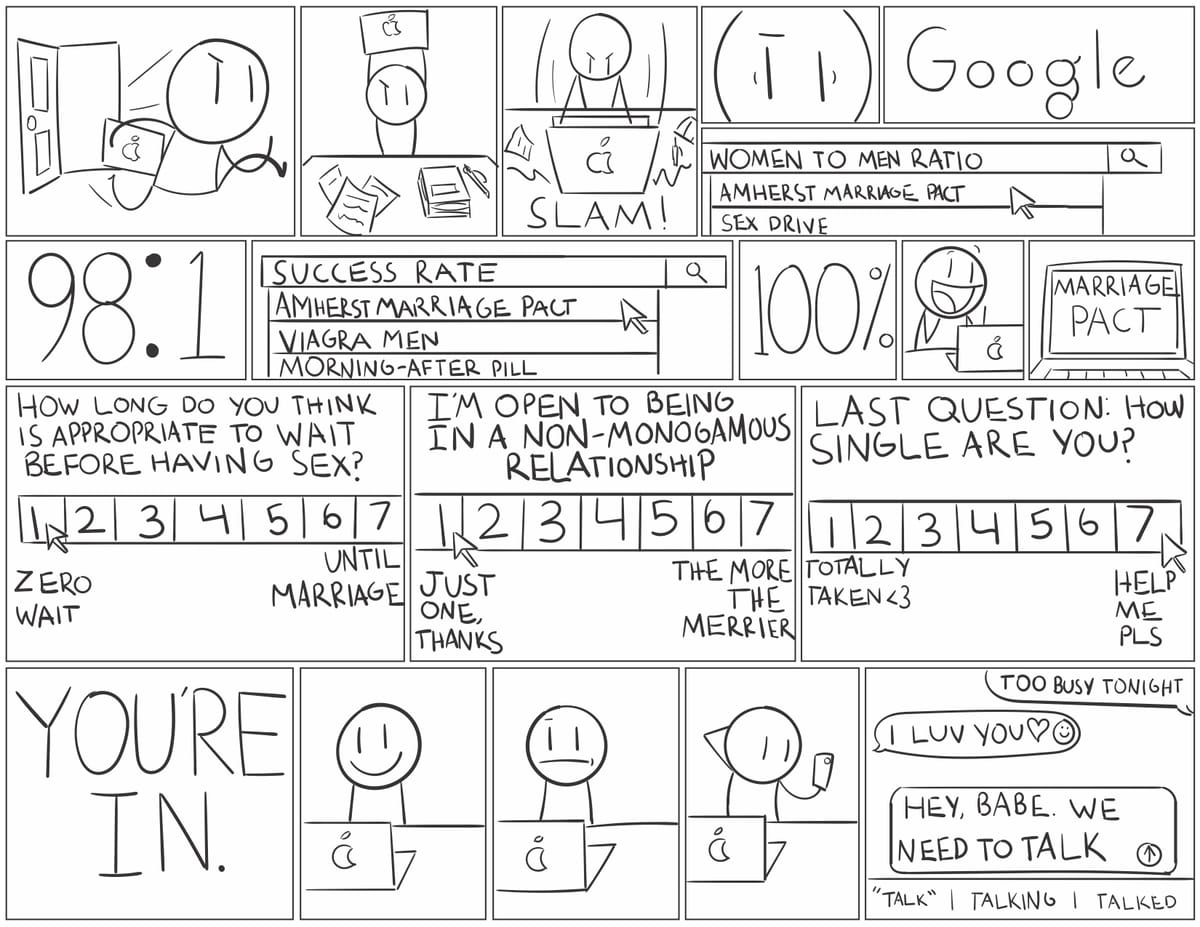 SLAM!
Google
WOMEN TO MEN RATIO
AMHERST MARRIAGE PACT
SEX DRIVE
98:1
SUCCESS RATE
AMHERST MARRIAGE PACT
VIAGRA MEN
MORNING-AFTER PILL
100%
MARRIAGE
PACT
HOW LONG DO YOU THINK
IS APPROPRIATE TO WAIT
BEFORE HAVING SEX?
1 2 3 4 5 6 7
ZERO
WAIT
UNTIL
MARRIAGE
I'M OPEN TO BEING
IN A NON-MONOGAMOUS
RELATIONSHIP
1 2 3 4 5 6 7
JUST
ONE,
THANKS
THE MORE
THE
MERRIER
LAST QUESTION: HOW
SINGLE ARE YOU?
1 2 3 4 5 6 7
TOTALLY
TAKEN <3
HELP
ME
PLS
YOU'RE
IN.
TOO BUSY TONIGHT
I LUV YOU♡☺
HEY, BABE. WE
NEED TO TALK
"TALK" | TALKING | TALKED